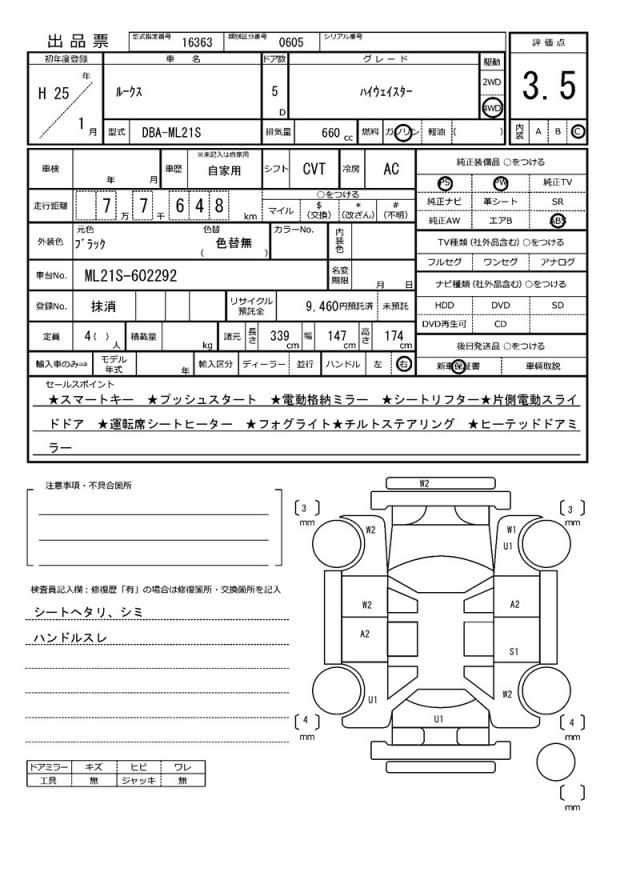 出品票 型式指定番号 16363 類別区分番号 0605 シリアル番号
初年度登録 車名 ドア数 グレード 駆動 評価点
H 25 年 1 月 ルークス 5 D ハイウェイスター 2WD 4WD 3.5
型式 DBA-ML21S 排気量 660 cc 燃料 ガソリン 軽油 ( ) 内装 A B C
車検 年 月 車歴 ※未記入は自家用 自家用 シフト CVT 冷房 AC 純正装備品 ○をつける
PS PW 純正TV
走行距離 7 万 7 千 6 4 8 km ○をつける 純正ナビ 革シート SR
マイル $ (交換) * (改ざん) # (不明) 純正AW エアB ABS
外装色 元色 ブラック 色替 ( 色替無 ) カラーNo. 内装色 TV種類 (社外品含む) ○をつける
フルセグ ワンセグ アナログ
車台No. ML21S-602292 名変期限 月 日 ナビ種類 (社外品含む) ○をつける
登録No. 抹消 リサイクル預託金 9,460円預託済 未預託 HDD DVD SD
DVD再生可 CD
定員 4( ) 人 積載量 kg 諸元 長さ 339 cm 幅 147 cm 高さ 174 cm 後日発送品 ○をつける
輸入車のみ⇒ モデル年式 年 輸入区分 ディーラー 並行 ハンドル 左 右 新車保証書 車輌取説
セールスポイント
★スマートキー ★プッシュスタート ★電動格納ミラー ★シートリフター★片側電動スライ
ドドア ★運転席シートヒーター ★フォグライト★チルトステアリング ★ヒーテッドドアミ
ラー
注意事項・不具合箇所
検査員記入欄：修復歴「有」の場合は修復箇所・交換箇所を記入
シートヘタリ、シミ
ハンドルスレ
ドアミラー キズ ヒビ ワレ
工具 無 ジャッキ 無
W2
[ 3 ] mm [ 3 ] mm
W2 W1
U1
W2 A2
A2 S1
U1 W2
U1
[ 4 ] mm [ 4 ] mm
[ ] mm